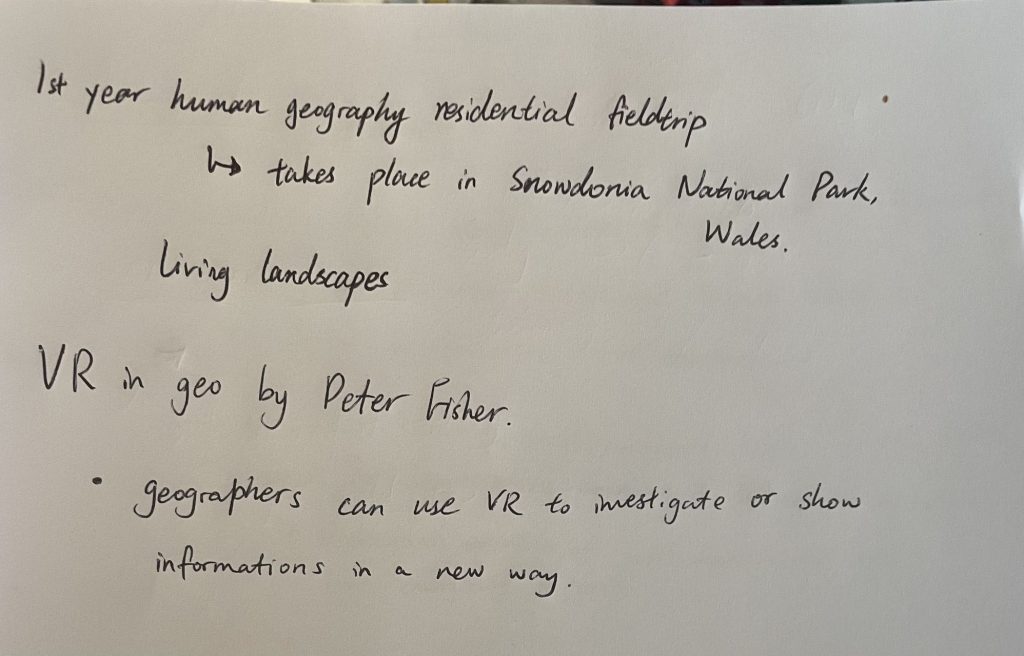 1st year human geography residential fieldtrip
↳ takes place in Snowdonia National Park,
Wales.
Living landscapes
VR in geo by Peter Fisher.
• geographers can use VR to investigate or show
informations in a new way.